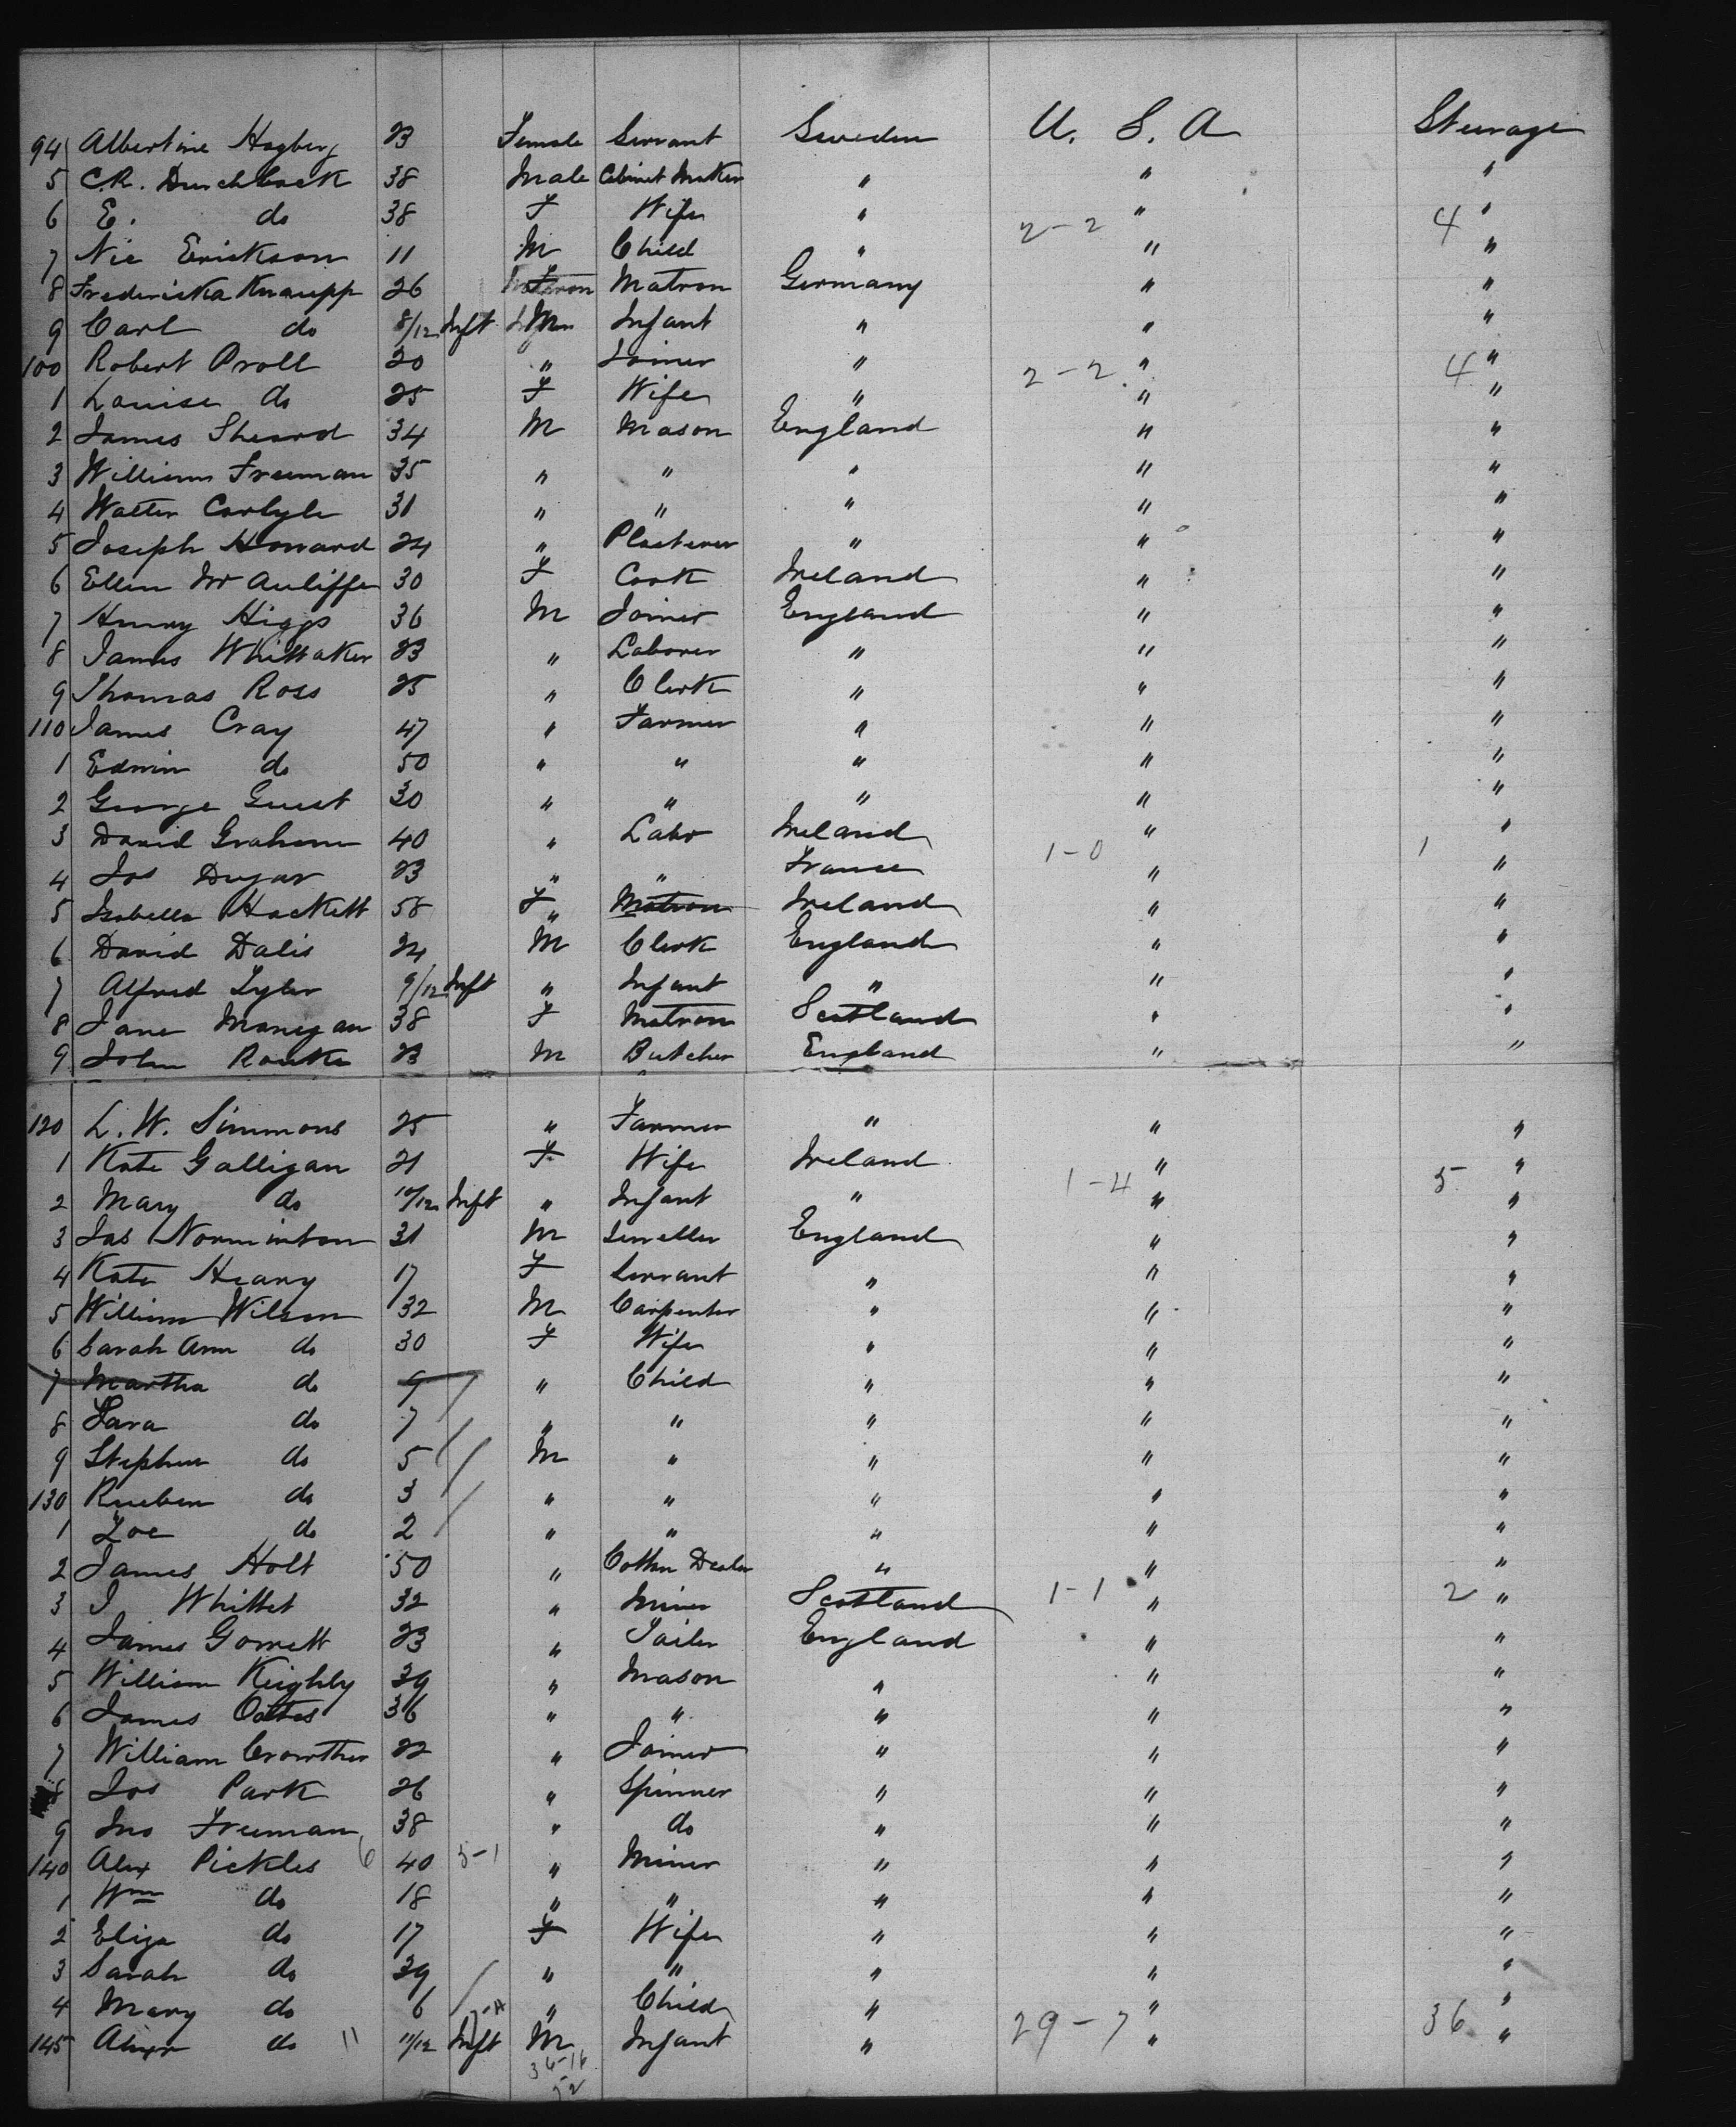 94 Albertine Hagberg 23 Female Servant Sweden U. S. A Steerage
5 C.R. 38 Male Cabinet Maker " " "
6 E. do 38 F Wife " 2-2 " 4 "
7 Nic Erickson 11 M Child " " "
8 Frederiska Knaupp 26 F Matron Germany " "
9 Carl do 8/12 Inft M Infant " " "
100 Robert Proll 20 " Joiner " 2-2 " 4 "
1 Louise do 25 F Wife " " "
2 James Sheard 34 M Mason England " "
3 William Freeman 35 " " " " "
4 Walter Carlyle 31 " " " " "
5 Joseph Howard 24 " Plasterer " " "
6 Ellen McAuliffe 30 F Cook Ireland " "
7 Henry Higgs 36 M Joiner England " "
8 James Whittaker 23 " Laborer " " "
9 Thomas Ross 25 " Clerk " " "
110 James Cray 47 " Farmer " " "
1 Edwin do 50 " " " " "
2 George Guest 30 " " " " "
3 David Graham 40 " Labr Ireland 1-0 " 1 "
4 Jos Dugar 23 " " France " "
5 Isabella Hackett 58 F " Matron Ireland " "
6 David Dalis 24 M Clerk England " "
7 Alfred Tyler 9/12 Inft " Infant " " "
8 Jane Manegan 38 F Matron Scotland " "
9 John Rourke 23 M Butcher England " "
120 L. W. Simmons 25 " Farmer " " "
1 Kate Galligan 21 F Wife Ireland 1-4 " 5 "
2 Mary do 10/12 Inft " Infant " " "
3 Jas Norminton 31 M Jeweller England " "
4 Kate Heany 17 F Servant " " "
5 William Wilson 32 M Carpenter " " "
6 Sarah Ann do 30 F Wife " " "
7 Martha do 9 / " Child " " "
8 Sara do 7 / " " " " "
9 Stephen do 5 / M " " " "
130 Rueben do 3 / " " " " "
1 Zoe do 2 / " " " " "
2 James Holt 50 " Cotton Dealer " " "
3 J Whittet 32 " Miner Scotland 1-1 " 2 "
4 James Gorrett 23 " Tailer England " "
5 William Keighly 39 " Mason " " "
6 James Oates 36 " " " " "
7 William Crowther 22 " Joiner " " "
8 Jos Park 26 " Spinner " " "
9 Jno Freeman 38 " do " " "
140 Alex Pickles 6 40 5-1 " Miner " " "
1 Wm do 18 " " " " "
2 Eliza do 17 F Wife " " "
3 Sarah do 39 " " " " "
4 Mary do 6 / " Child " " "
145 Alexr do 11 11/12 Inft M Infant " 29-7 " 36 "